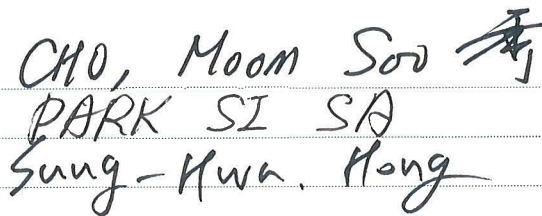 CHO, Moom Soo 秀
PARK SI SA
Sung-Hwa. Hong